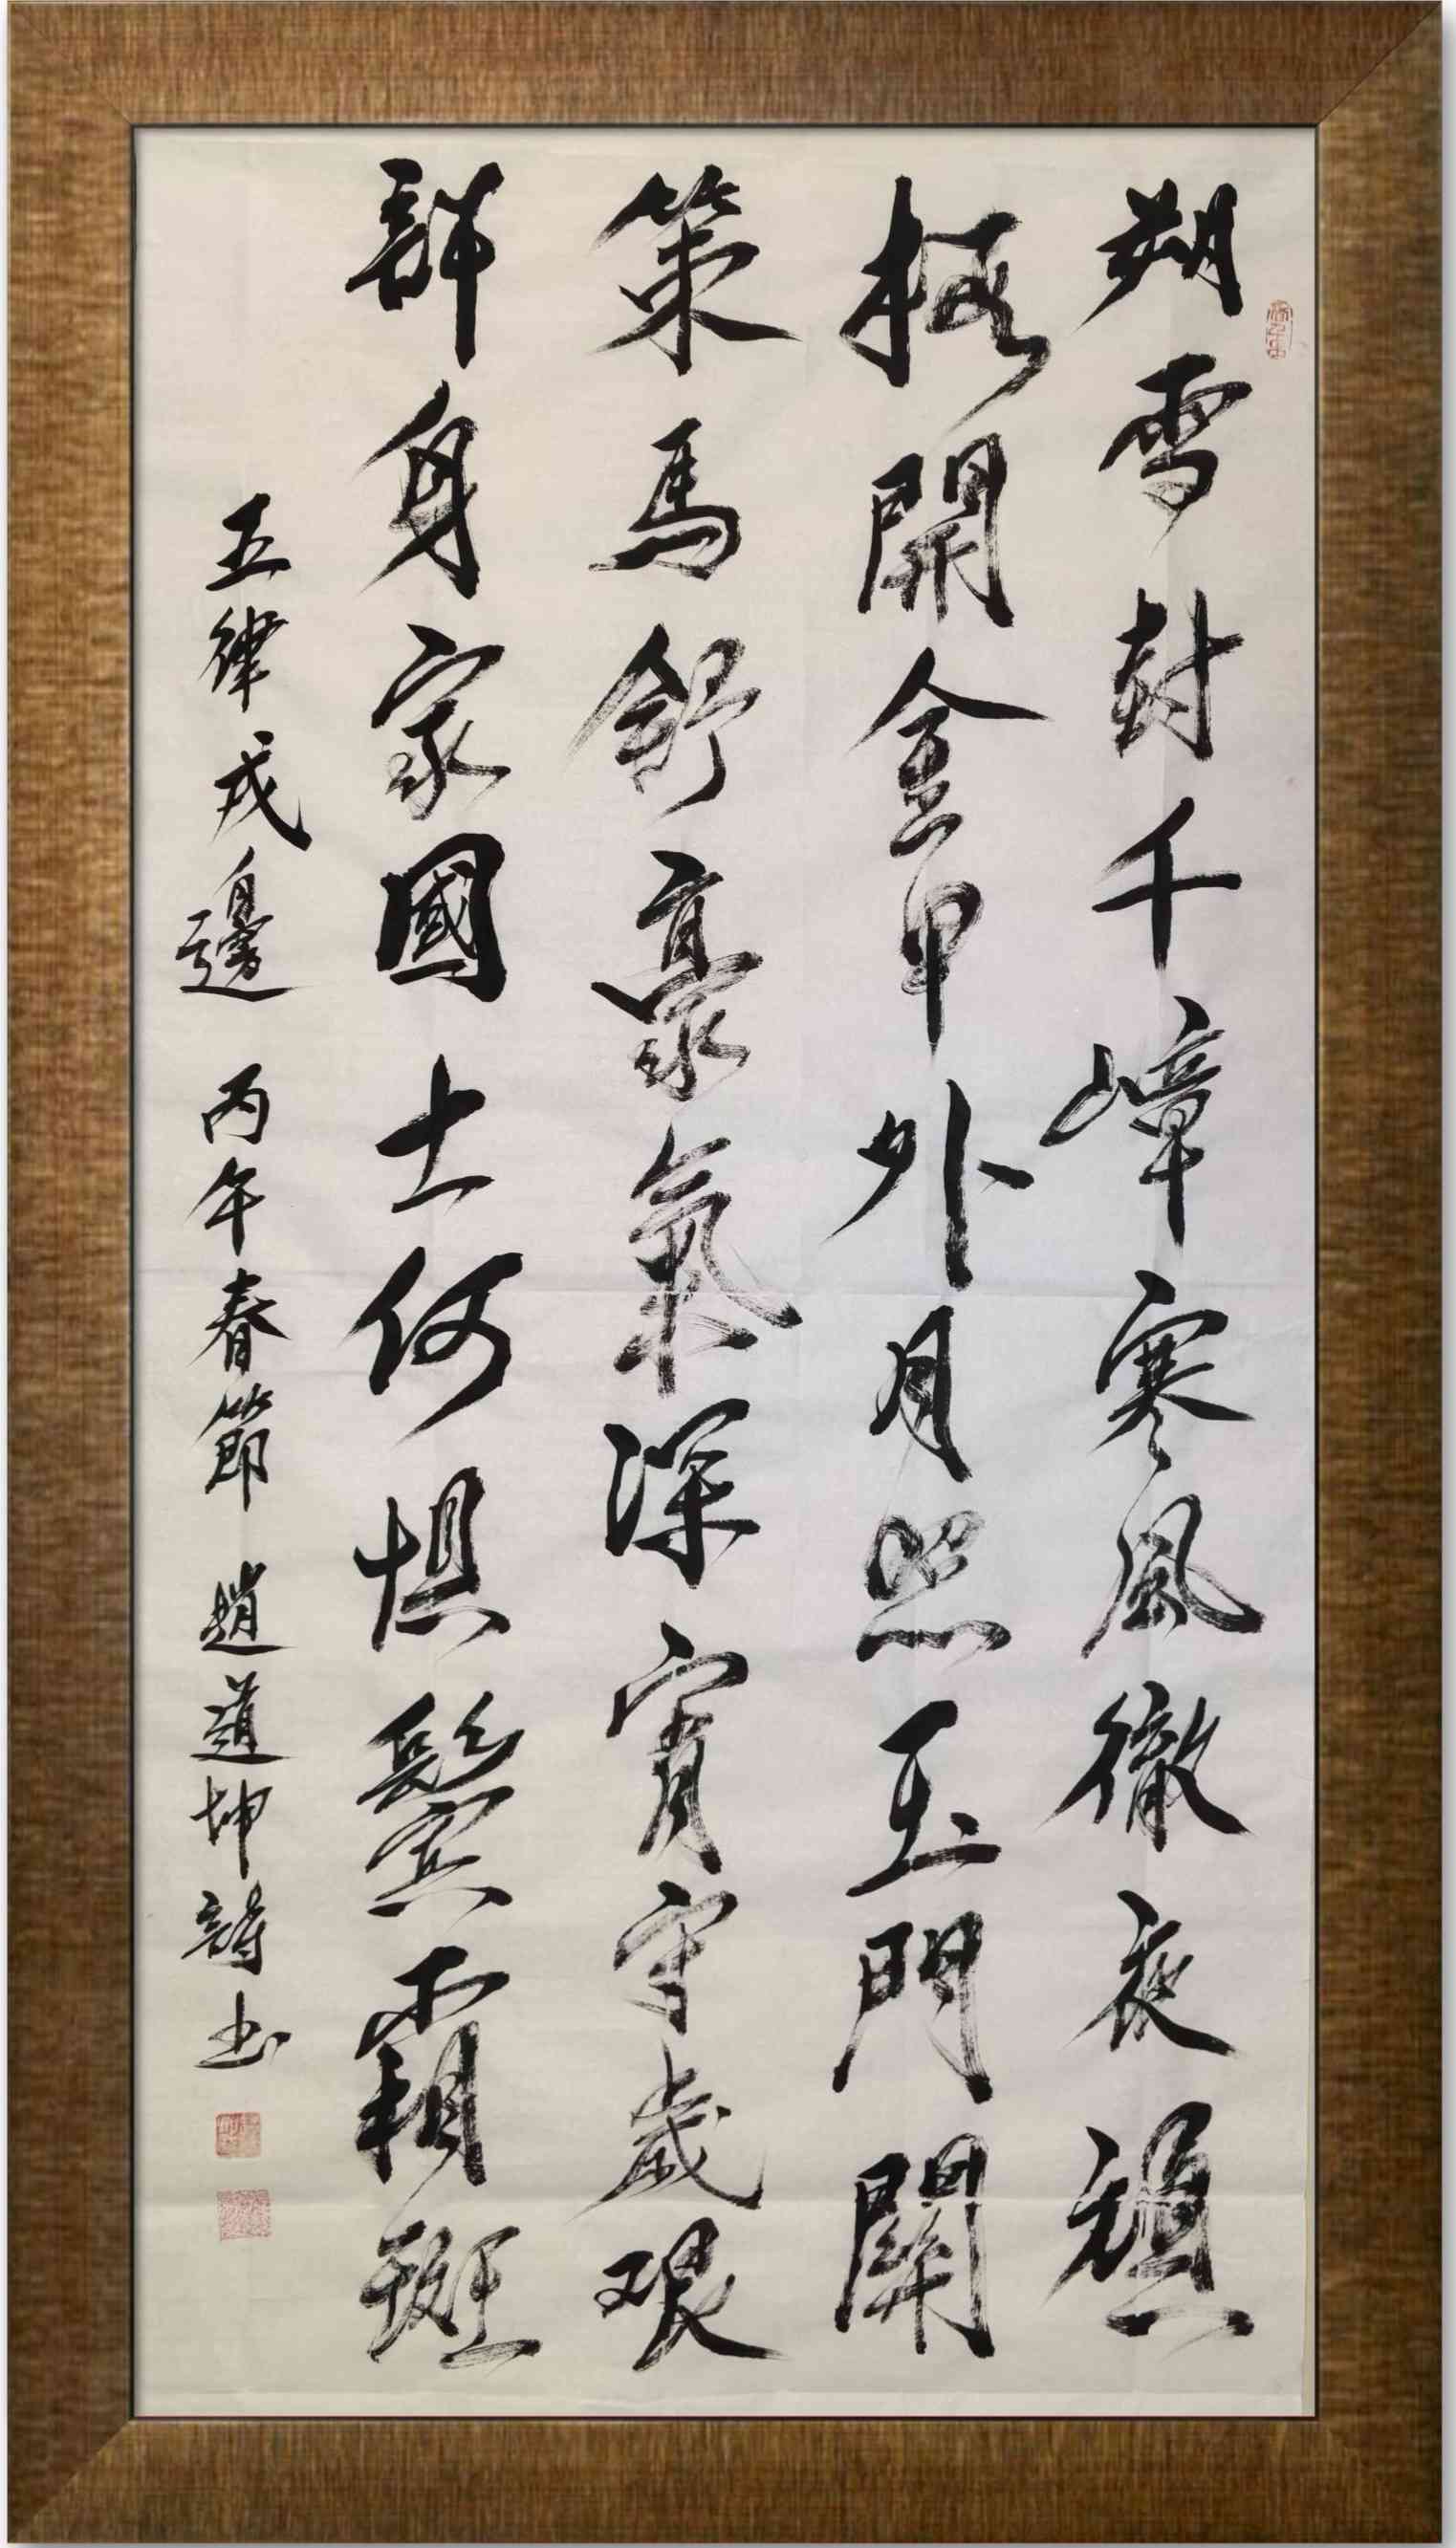 朔雪封千嶂寒風徹夜頑
梅開金甲外月照玉門關
策馬舒豪氣深宵守歲艱
許身家國土何懼鬢霜斑
五律戍邊 丙午春節 趙道坤詩书